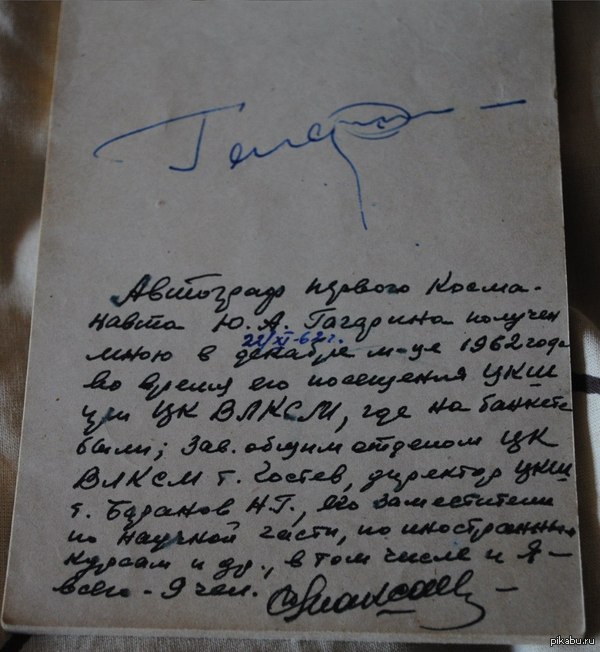 Гагарин
Автограф первого Косма-
навта Ю. А. Гагарина получен
22/XI-62г.
мною в декабре м-це 1962 года
во время его посещения ЦКШ
при ЦК ВЛКСМ, где на банкете
были; Зав. общим отделом ЦК
ВЛКСМ т. Гостев, директор ЦКШ
т. Баранов Н.Г., его заместители
по научной части, по иностранным
курсам и др., в том числе и я –
всего - 9 чел.
pikabu.ru